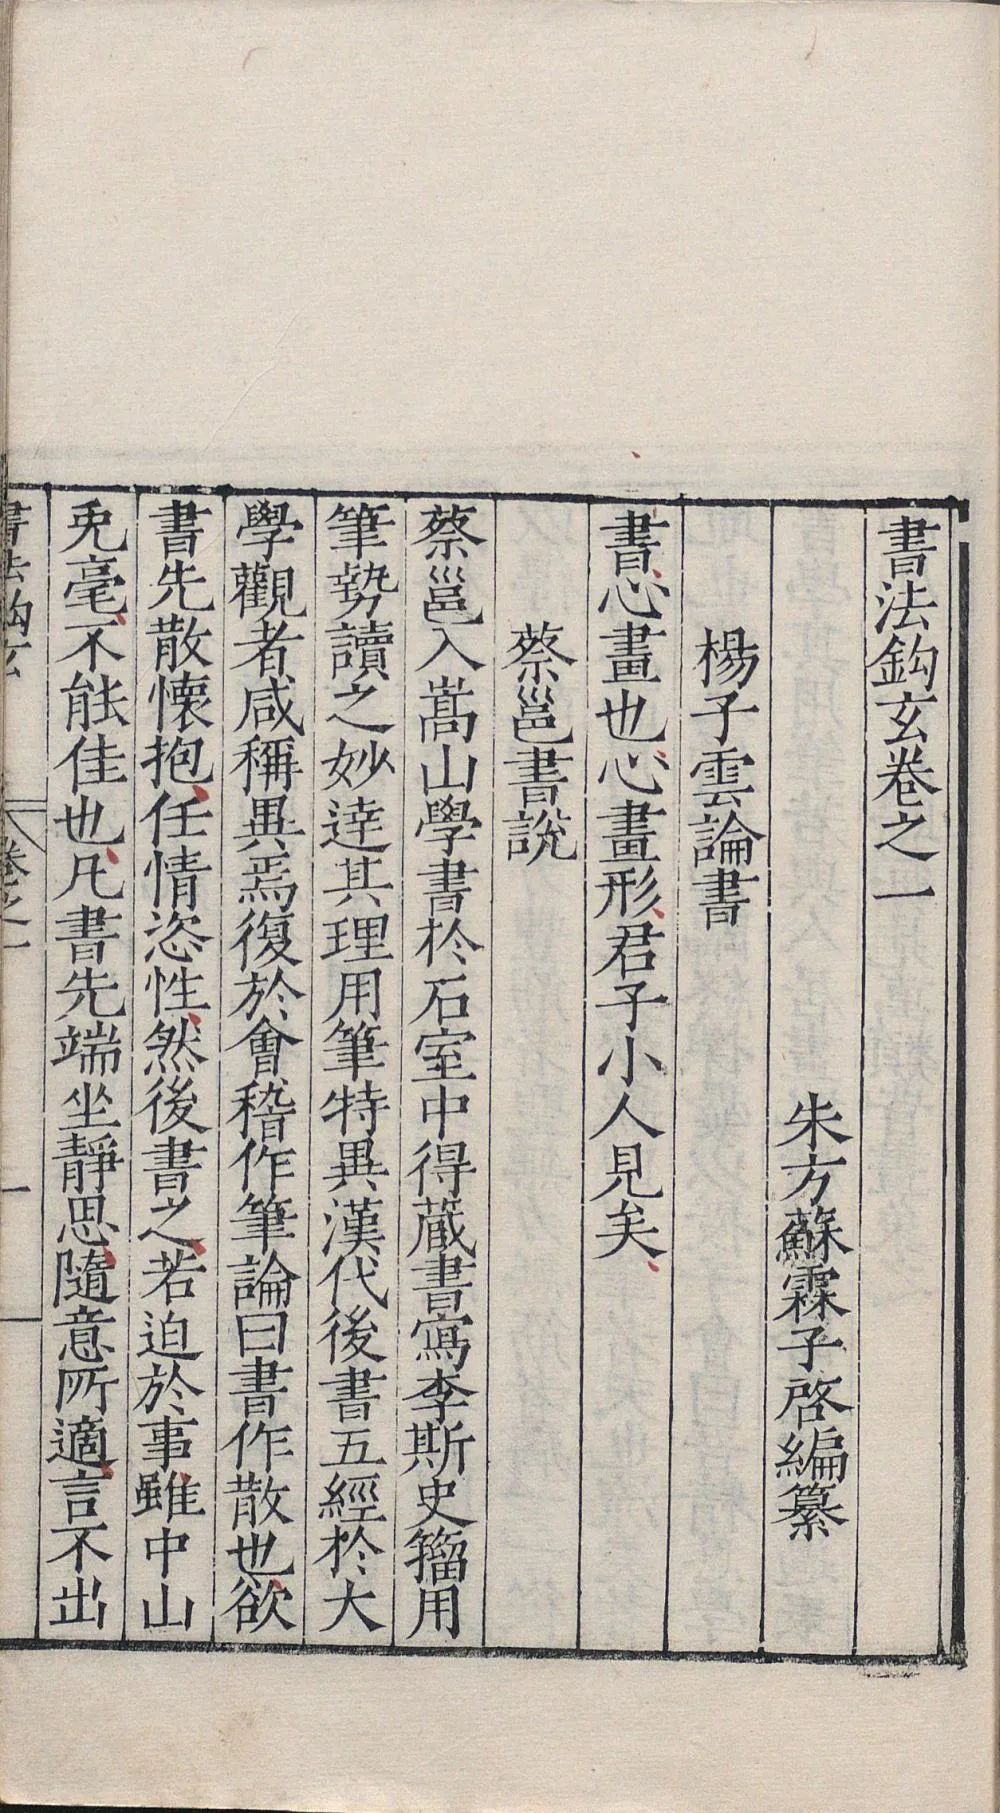 書法鈎玄卷之一
朱方蘇霖子啓編纂
楊子雲論書
書心畫也心畫形君子小人見矣
蔡邕書說
蔡邕入嵩山學書於石室中得蔵書寫李斯史籕用
筆勢讀之妙達其理用筆特異漢代後書五經於大
學觀者咸稱異焉復於會稽作筆論曰書作散也欲
書先散懷抱任情恣性然後書之若迫於事雖中山
兎毫不能佳也凡書先端坐静思隨意所適言不出
書法鈎玄 卷之一 一